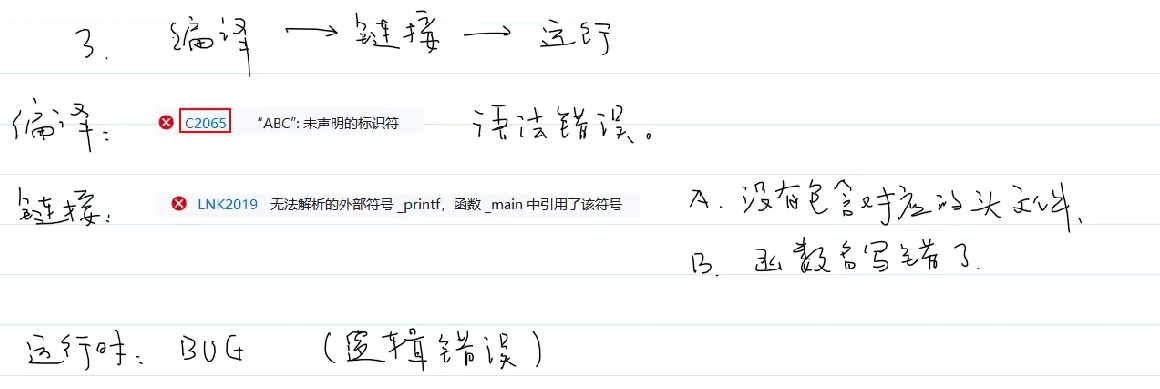 3. 编译 → 链接 → 运行
编译: C2065 "ABC": 未声明的标识符 语法错误。
链接: LNK2019 无法解析的外部符号 _printf，函数 _main 中引用了该符号 A. 没有包含对应的头文件、
B. 函数名写错了.
运行时: BUG (逻辑错误)